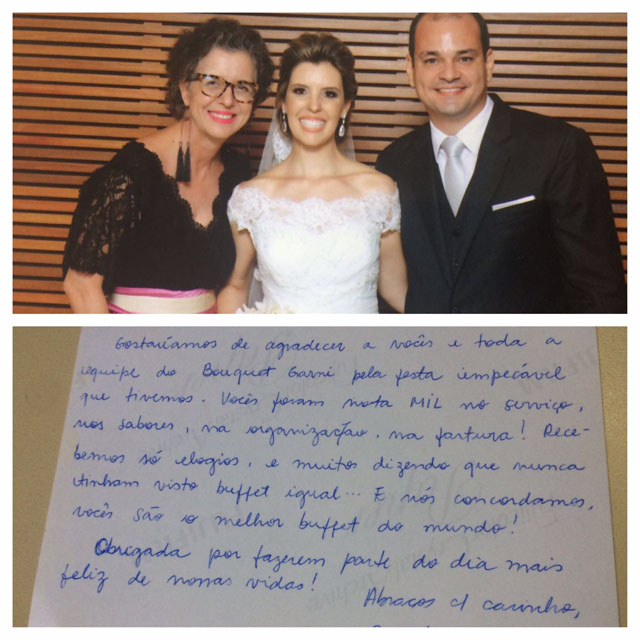 Gostaríamos de agradecer a vocês e toda a
equipe do Bouquet Garni pela festa impecável
que tivemos. Vocês foram nota MIL no serviço,
nos sabores, na organização, na fartura! Rece-
bemos só elogios, e muitos dizendo que nunca
tinham visto buffet igual... E nós concordamos,
vocês são o melhor buffet do mundo!
Obrigada por fazerem parte do dia mais
feliz de nossas vidas!
Abraços c/ carinho,